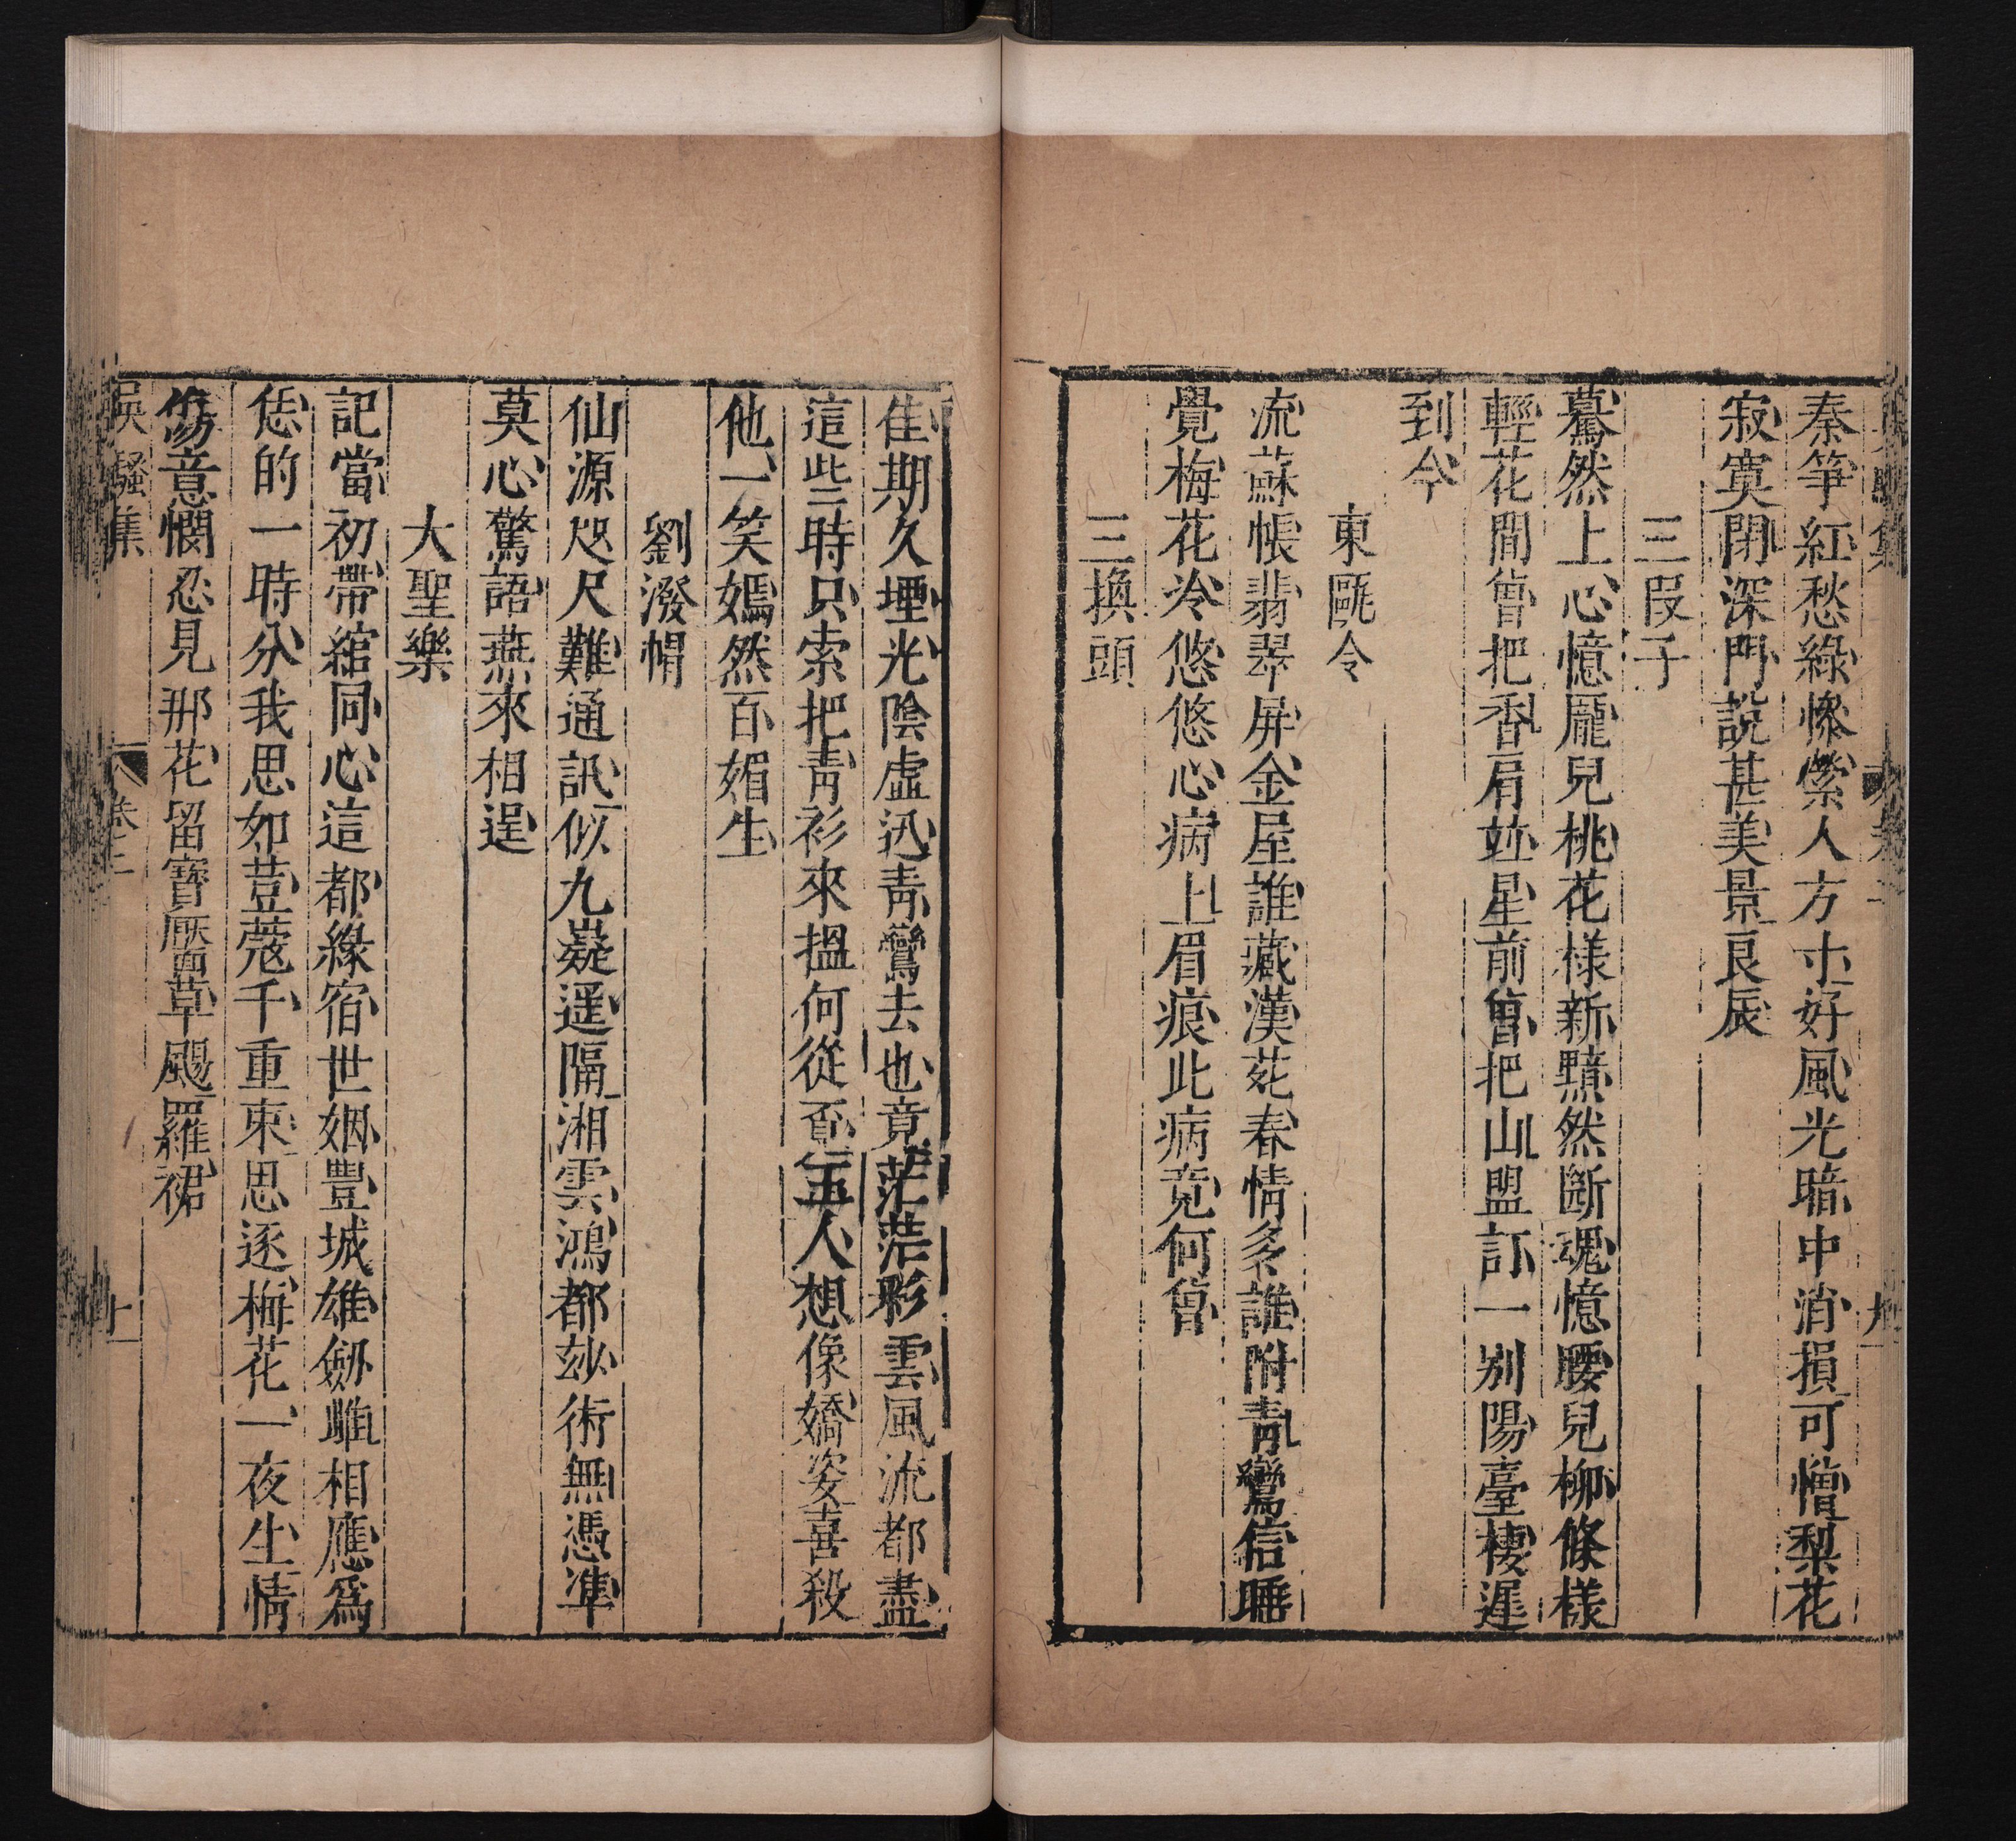 秦箏紅愁綠慘縈人方寸好風光暗中消損可憎梨花
寂寞閉深門說甚美景良辰
三叚子
驀然上心憶龐兒桃花樣新黯然斷魂憶腰兒柳條樣
輕花間曾把香肩竝星前曾把山盟訂一別陽臺棲遲
到今
東甌令
流蘇帳翡翠屏金屋誰藏漢苑春情多誰附靑鸞信睡
覺梅花冷悠悠心病上眉痕此病竟何曾
三換頭
佳期久堙光陰虛迅靑鸞去也竟茫茫彩雲風流都盡
這些時只索把靑衫來搵何從覔玉人想像嬌姿喜殺
他一笑嫣然百媚生
劉潑帽
仙源咫尺難通訊似九嶷遥隔湘雲鴻都玅術無憑準
莫心驚語燕來相逞
大聖樂
記當初帶綰同心這都緣宿世姻豐城雄劒雌相應爲
恁的一時分我思如荳蔻千重束思逐梅花一夜生情
傷意憫忍見那花留寶壓草颺羅裙
吳騷集 卷二 十